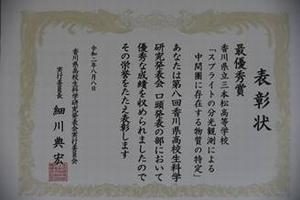 表彰状
最優秀賞
香川県立三本松高等学校
「スプライトの分光観測による
中間圏に存在する物質の特定」
あなたは第八回香川県高校生科学
研究発表会口頭発表の部において
優秀な成績を収められましたので
その栄誉をたたえ表彰します
令和二年八月八日
香川県高校生科学研究発表会実行委員会
実行委員長 細川典宏